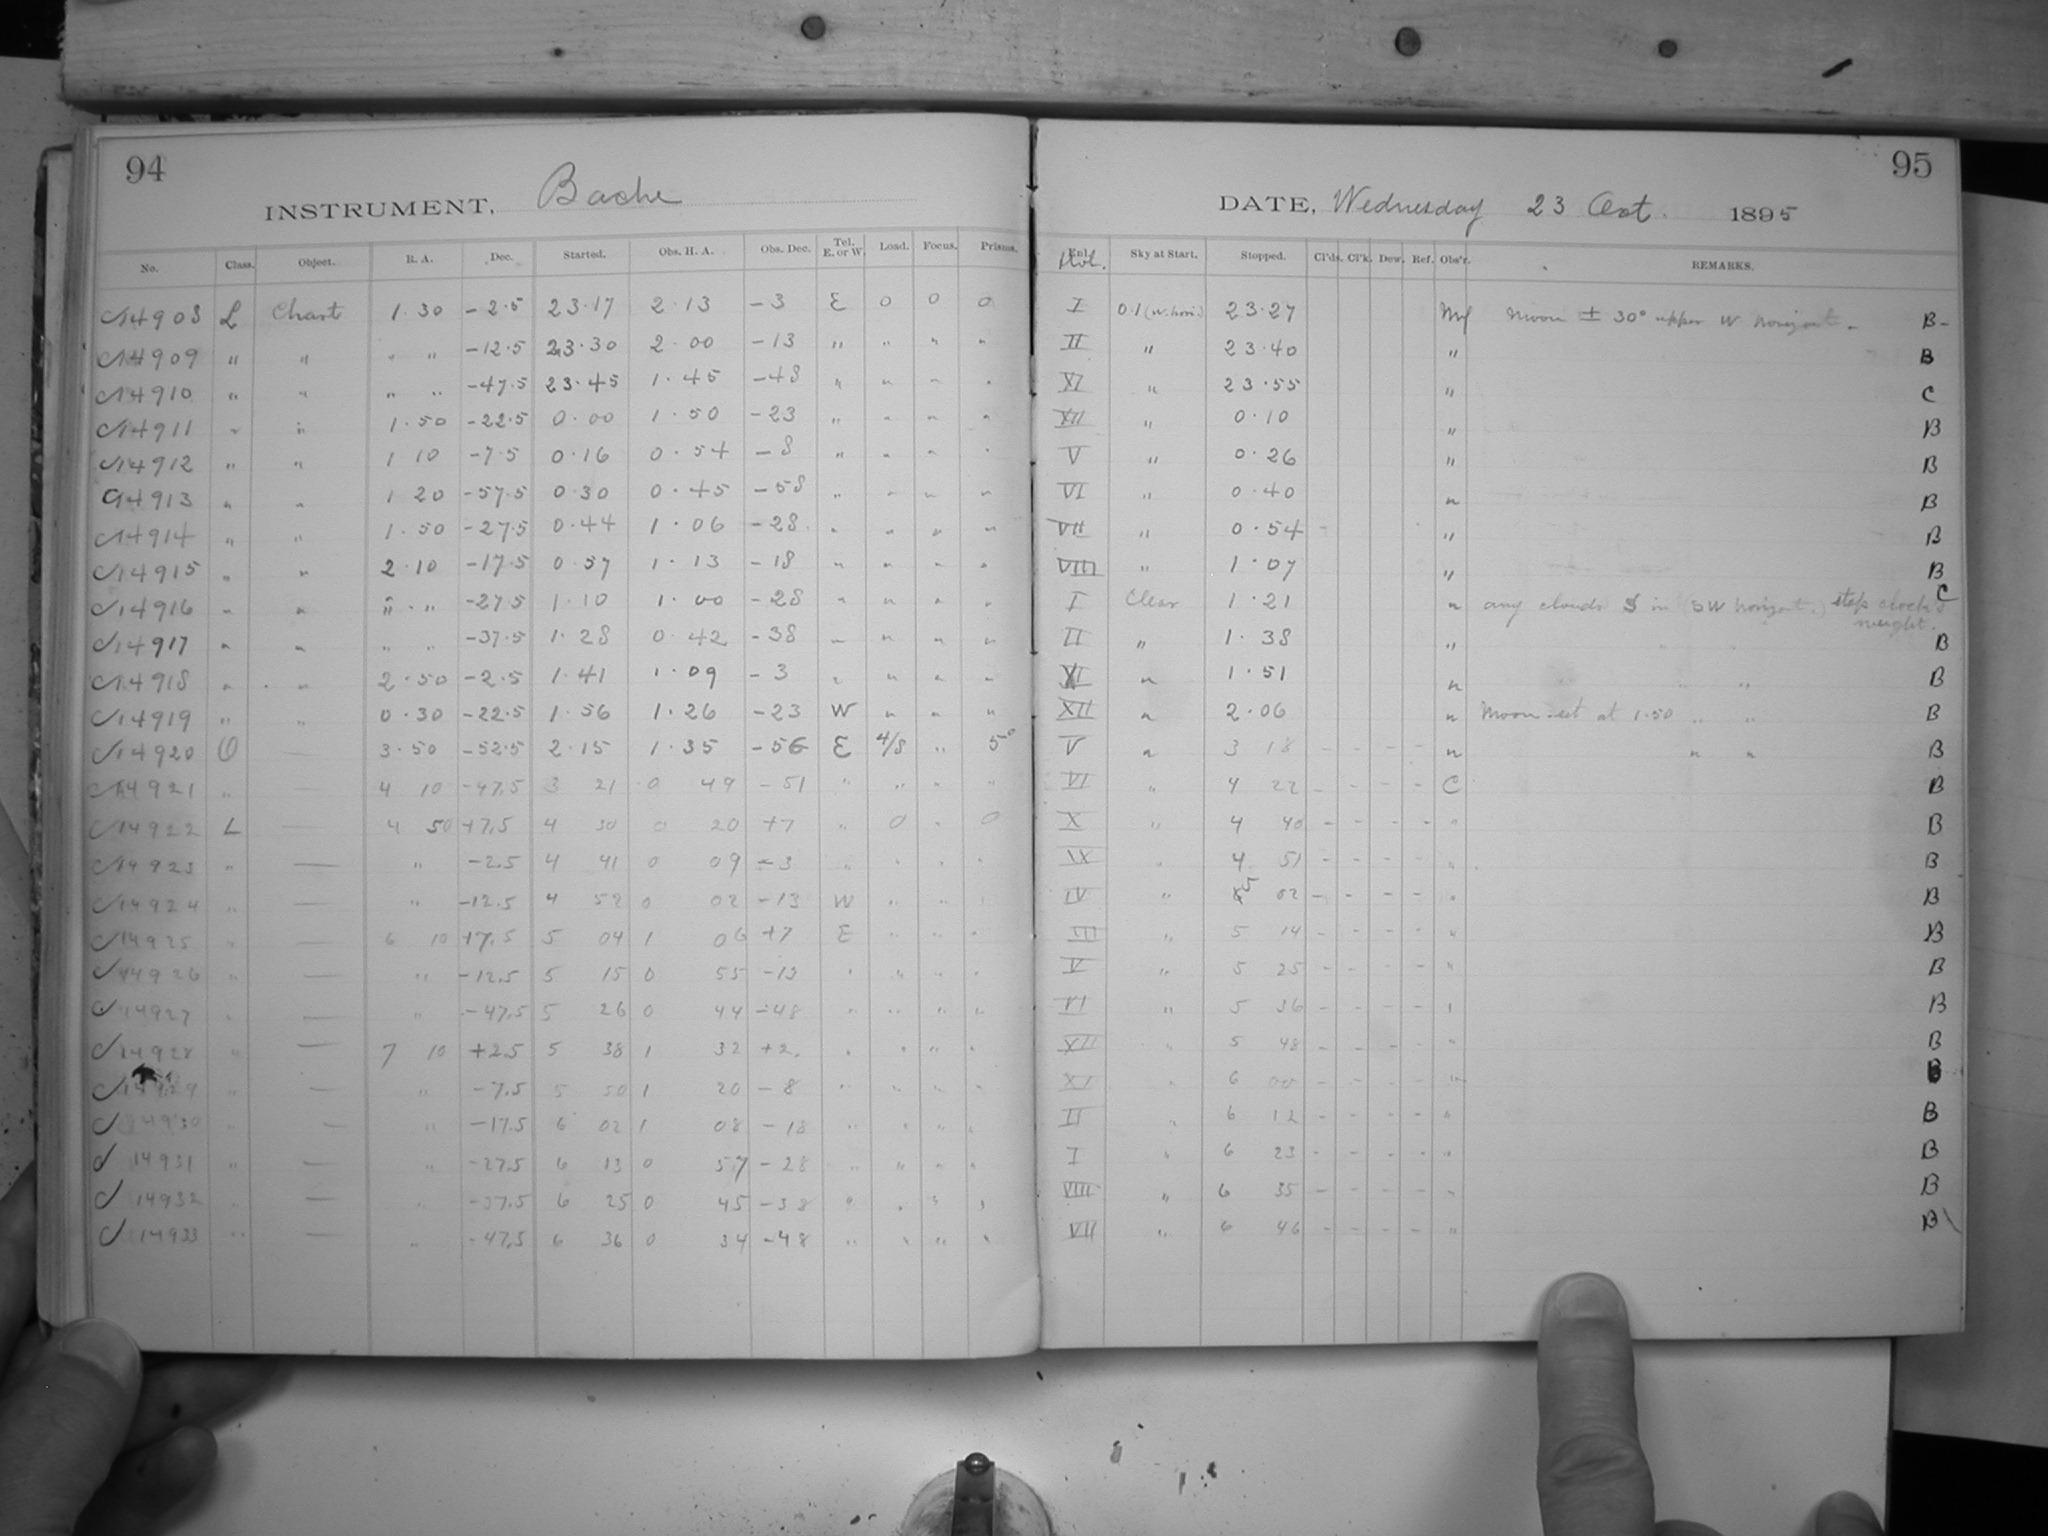 94
INSTRUMENT, Bache
No. Class. Object. R. A. Dec. Started. Obs. H. A. Obs. Dec. Tel. E. or W. Load. Focus. Prisms.
14908 L Chart 1.30 -2.5 23.17 2.13 -3 E 0 0 0
14909 " " " " -12.5 23.30 2.00 -13 " " " "
14910 " " " " -47.5 23.45 1.45 -48 " " " "
14911 " " 1.50 -22.5 0.00 1.50 -23 " " " "
14912 " " 1 10 -7.5 0.16 0.54 -8 " " " "
14913 " " 1 20 -57.5 0.30 0.45 -58 " " " "
14914 " " 1.50 -27.5 0.44 1.06 -28 " " " "
14915 " " 2.10 -17.5 0.57 1.13 -18 " " " "
14916 " " " " -27.5 1.10 1.00 -28 " " " "
14917 " " " " -37.5 1.28 0.42 -38 " " " "
14918 " " 2.50 -2.5 1.41 1.09 -3 " " " "
14919 " " 0.30 -22.5 1.56 1.26 -23 W " " "
14920 O — 3.50 -52.5 2.15 1.35 -56 E 4/8 " 5°
14921 " — 4 10 -47.5 3 21 0 49 -51 " " " "
14922 L — 4 50 +7.5 4 30 0 20 +7 " 0 " 0
14923 " — " -2.5 4 41 0 09 -3 " " " "
14924 " — " -12.5 4 52 0 02 -13 W " " "
14925 " — 6 10 +7.5 5 04 1 06 +7 E " " "
14926 " — " -12.5 5 15 0 55 -13 " " " "
14927 " — " -47.5 5 26 0 44 -48 " " " "
14928 " — 7 10 +2.5 5 38 1 32 +2 " " " "
14929 " — " -7.5 5 50 1 20 -8 " " " "
14930 " — " -17.5 6 02 1 08 -18 " " " "
14931 " — " -27.5 6 13 0 57 -28 " " " "
14932 " — " -37.5 6 25 0 45 -38 " " " "
14933 " — " -47.5 6 36 0 34 -48 " " " "
95
DATE, Wednesday 23 Oct. 1895
Sky at Start. Stopped. Cl'ds. Cl'k. Dew. Ref. Obs'r. REMARKS.
I 0.1 (W. hori.) 23.27 Moon ± 30° upper W horizont. B-
II " 23.40 " B
XI " 23.55 " C
XII " 0.10 " B
V " 0.26 " B
VI " 0.40 " B
VII " 0.54 " B
VIII " 1.07 " B
I Clear 1.21 " any clouds S in (SW horizont.) stop clock's weight. C
II " 1.38 " B
XI " 1.51 " " " B
XII " 2.06 " Moon set at 1.50 " " B
V " 3 18 - - - - " " " B
VI " 4 22 - - - - C B
X " 4 40 - - - - " B
IX " 4 51 - - - - " B
IV " 5 02 - - - - " B
III " 5 14 - - - - " B
V " 5 25 - - - - " B
VI " 5 36 - - - - " B
XII " 5 48 - - - - " B
XI " 6 00 - - - - " B
II " 6 12 - - - - " B
I " 6 23 - - - - " B
VIII " 6 35 - - - - " B
VII " 6 46 - - - - " B